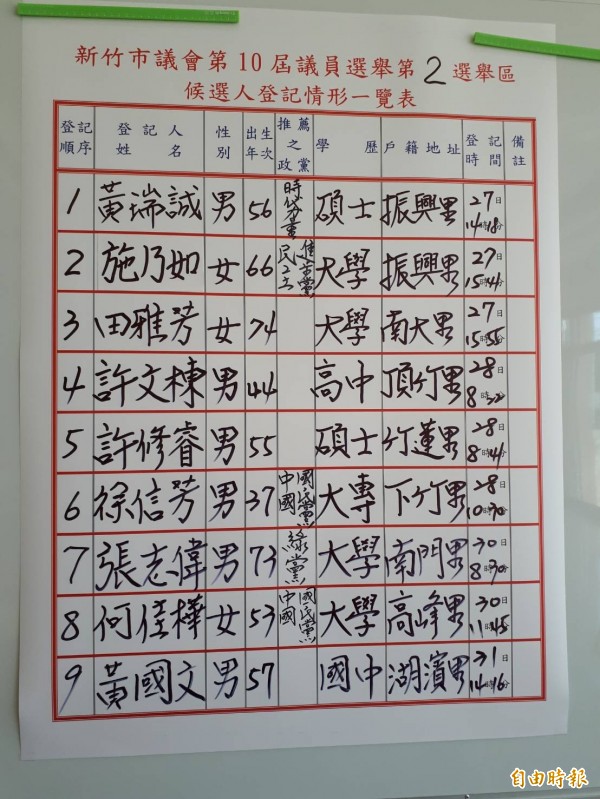 新竹市議會第10屆議員選舉第2選舉區
候選人登記情形一覽表
登記順序 登記人姓名 性別 出生年次 推薦之政黨 學歷 戶籍地址 登記時間 備註
1 黃瑞誠 男 56 時代力量 碩士 振興里 27日14時18分
2 施乃如 女 66 民主進步黨 大學 振興里 27日15時44分
3 田雅芳 女 74 大學 南大里 27日15時55分
4 許文棟 男 44 高中 頂竹里 28日8時32分
5 許修睿 男 55 碩士 竹蓮里 28日8時41分
6 徐信芳 男 37 中國國民黨 大專 下竹里 28日10時30分
7 張志偉 男 73 綠黨 大學 南門里 30日8時30分
8 何佳樺 女 53 中國國民黨 大學 高峰里 30日11時45分
9 黃國文 男 57 國中 湖濱里 31日14時16分
自由時報